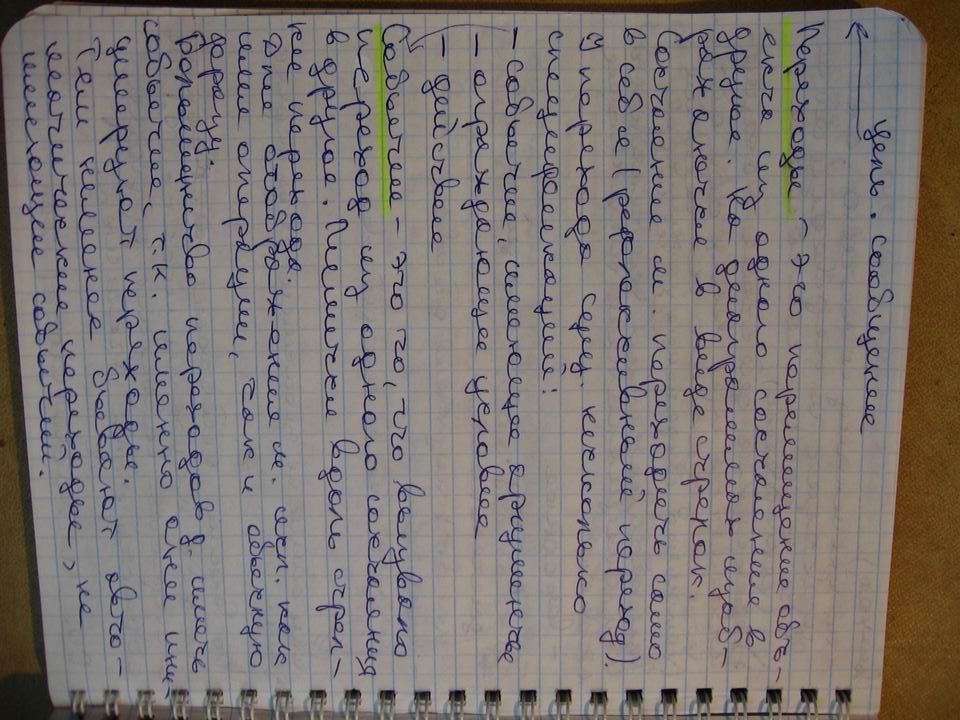 цепь. сообщение
Переходы - это перемещение объ-
екта из одного состояния в
другое. На диаграммах изоб-
ражаются в виде стрелок.
Состояние м. переходить само
в себя (рефлексивный переход).
У перехода сущ. несколько
спецификаций:
- событие, имеющее аргументы
- ограждающее условие
- действие
Событие - это то, что вызвало
переход из одного состояния
в другое. Пишется вдоль стрел-
ке перехода.
Для отображения м. исп. как
имя операции, так и обычную
фразу.
Большинство переходов д. иметь
события, т.к. именно они ини-
циируют переходы.
Тем не менее бывают авто-
матические переходы, не
имеющие событий.